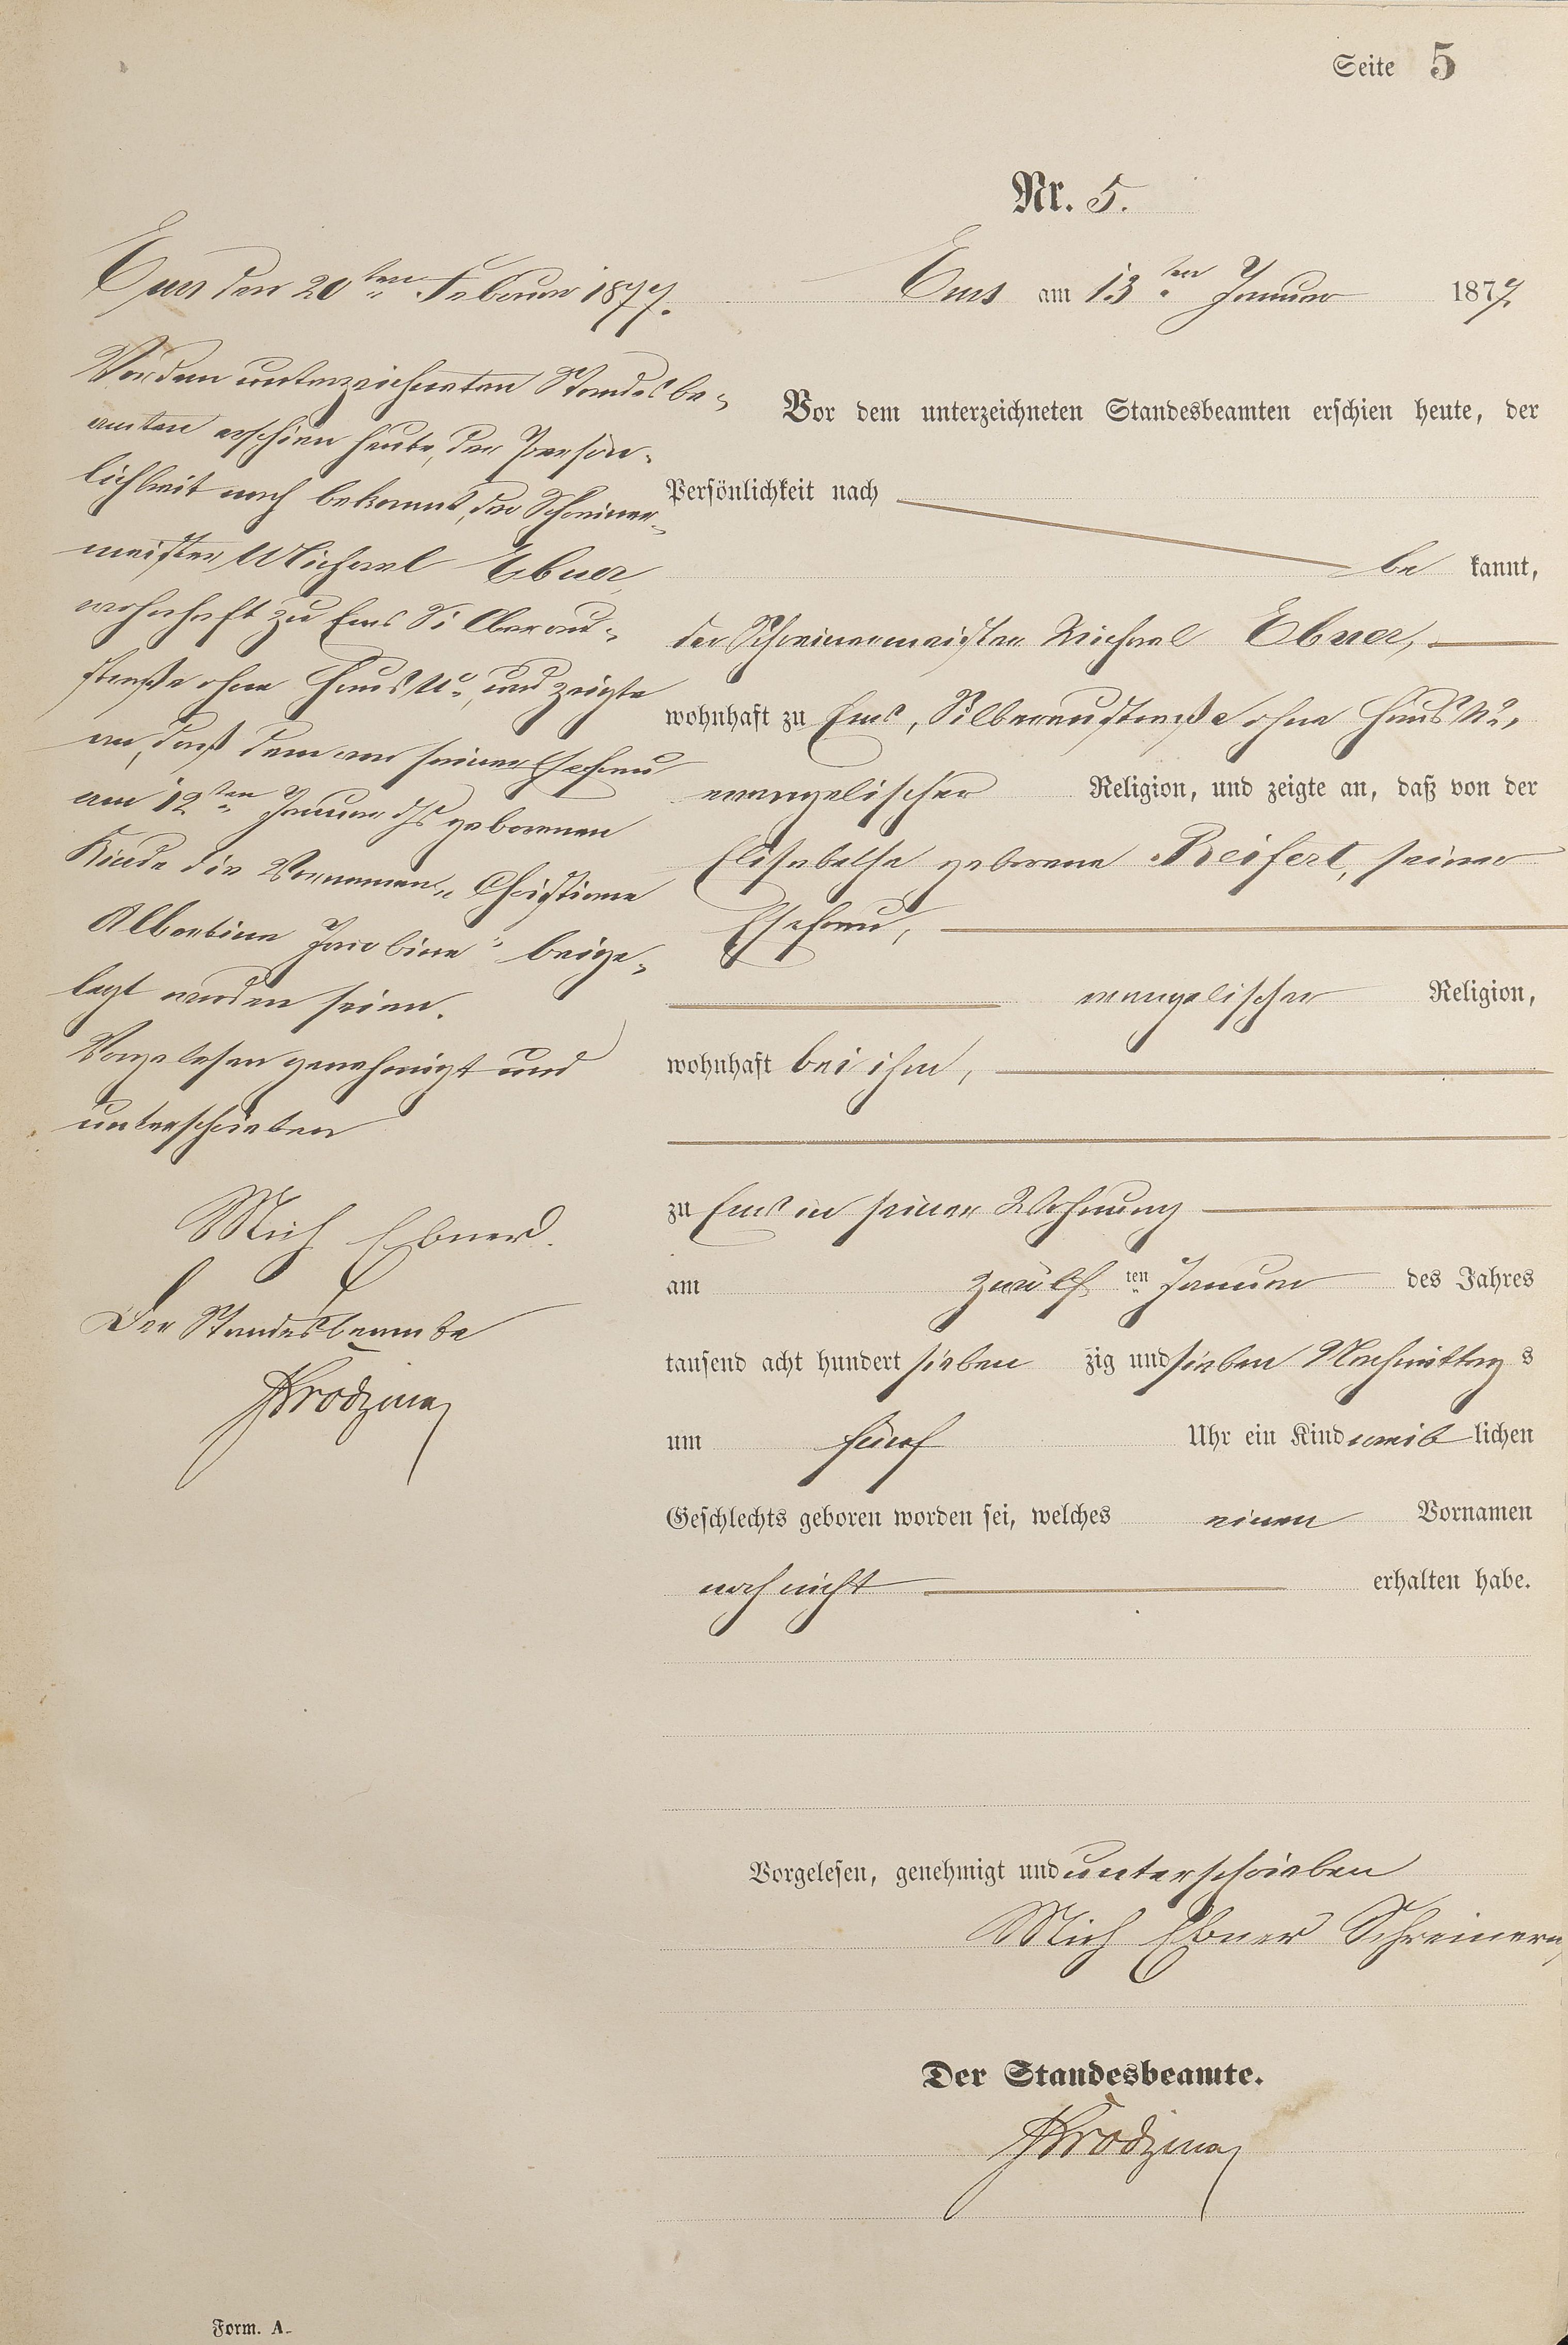 Seite 5
Nr. 5.
Ems am 13ten Januar 1877.
Vor dem unterzeichneten Standesbeamten erschien heute, der
Persönlichkeit nach
be kannt,
der Schreinermeister Michael Ebner,
wohnhaft zu Ems, Silberaustraße ohne Haus No,
evangelischer Religion, und zeigte an, daß von der
Elisabetha geborene Reifert, seiner
Ehefrau,
evangelischer Religion,
wohnhaft bei ihm,
zu Ems in seiner Wohnung
am zwölf ten Januar des Jahres
tausend acht hundert sieben zig und sieben Nachmittag s
um fünf Uhr ein Kind weib lichen
Geschlechts geboren worden sei, welches einen Vornamen
noch nicht erhalten habe.
Vorgelesen, genehmigt und unterschrieben
Mich Ebner
Der Standesbeamte.
Ems den 20ten Februar 1877.
Vor dem unterzeichneten Standesbe-
amten erschien heute, der Persön-
lichkeit nach bekannt, der Schreiner-
meister Michael Ebner,
wohnhaft zu Ems Silberau-
straße ohne Haus No, und zeigte
an, daß dem von seiner Ehefrau
am 12ten Januar ds geborenen
Kinde die Vornamen „Christiane
Albertine Jacobine" beige-
legt worden seien.
Vorgelesen genehmigt und
unterschrieben
Mich Ebner.
Der Standesbeamte
Form. A.